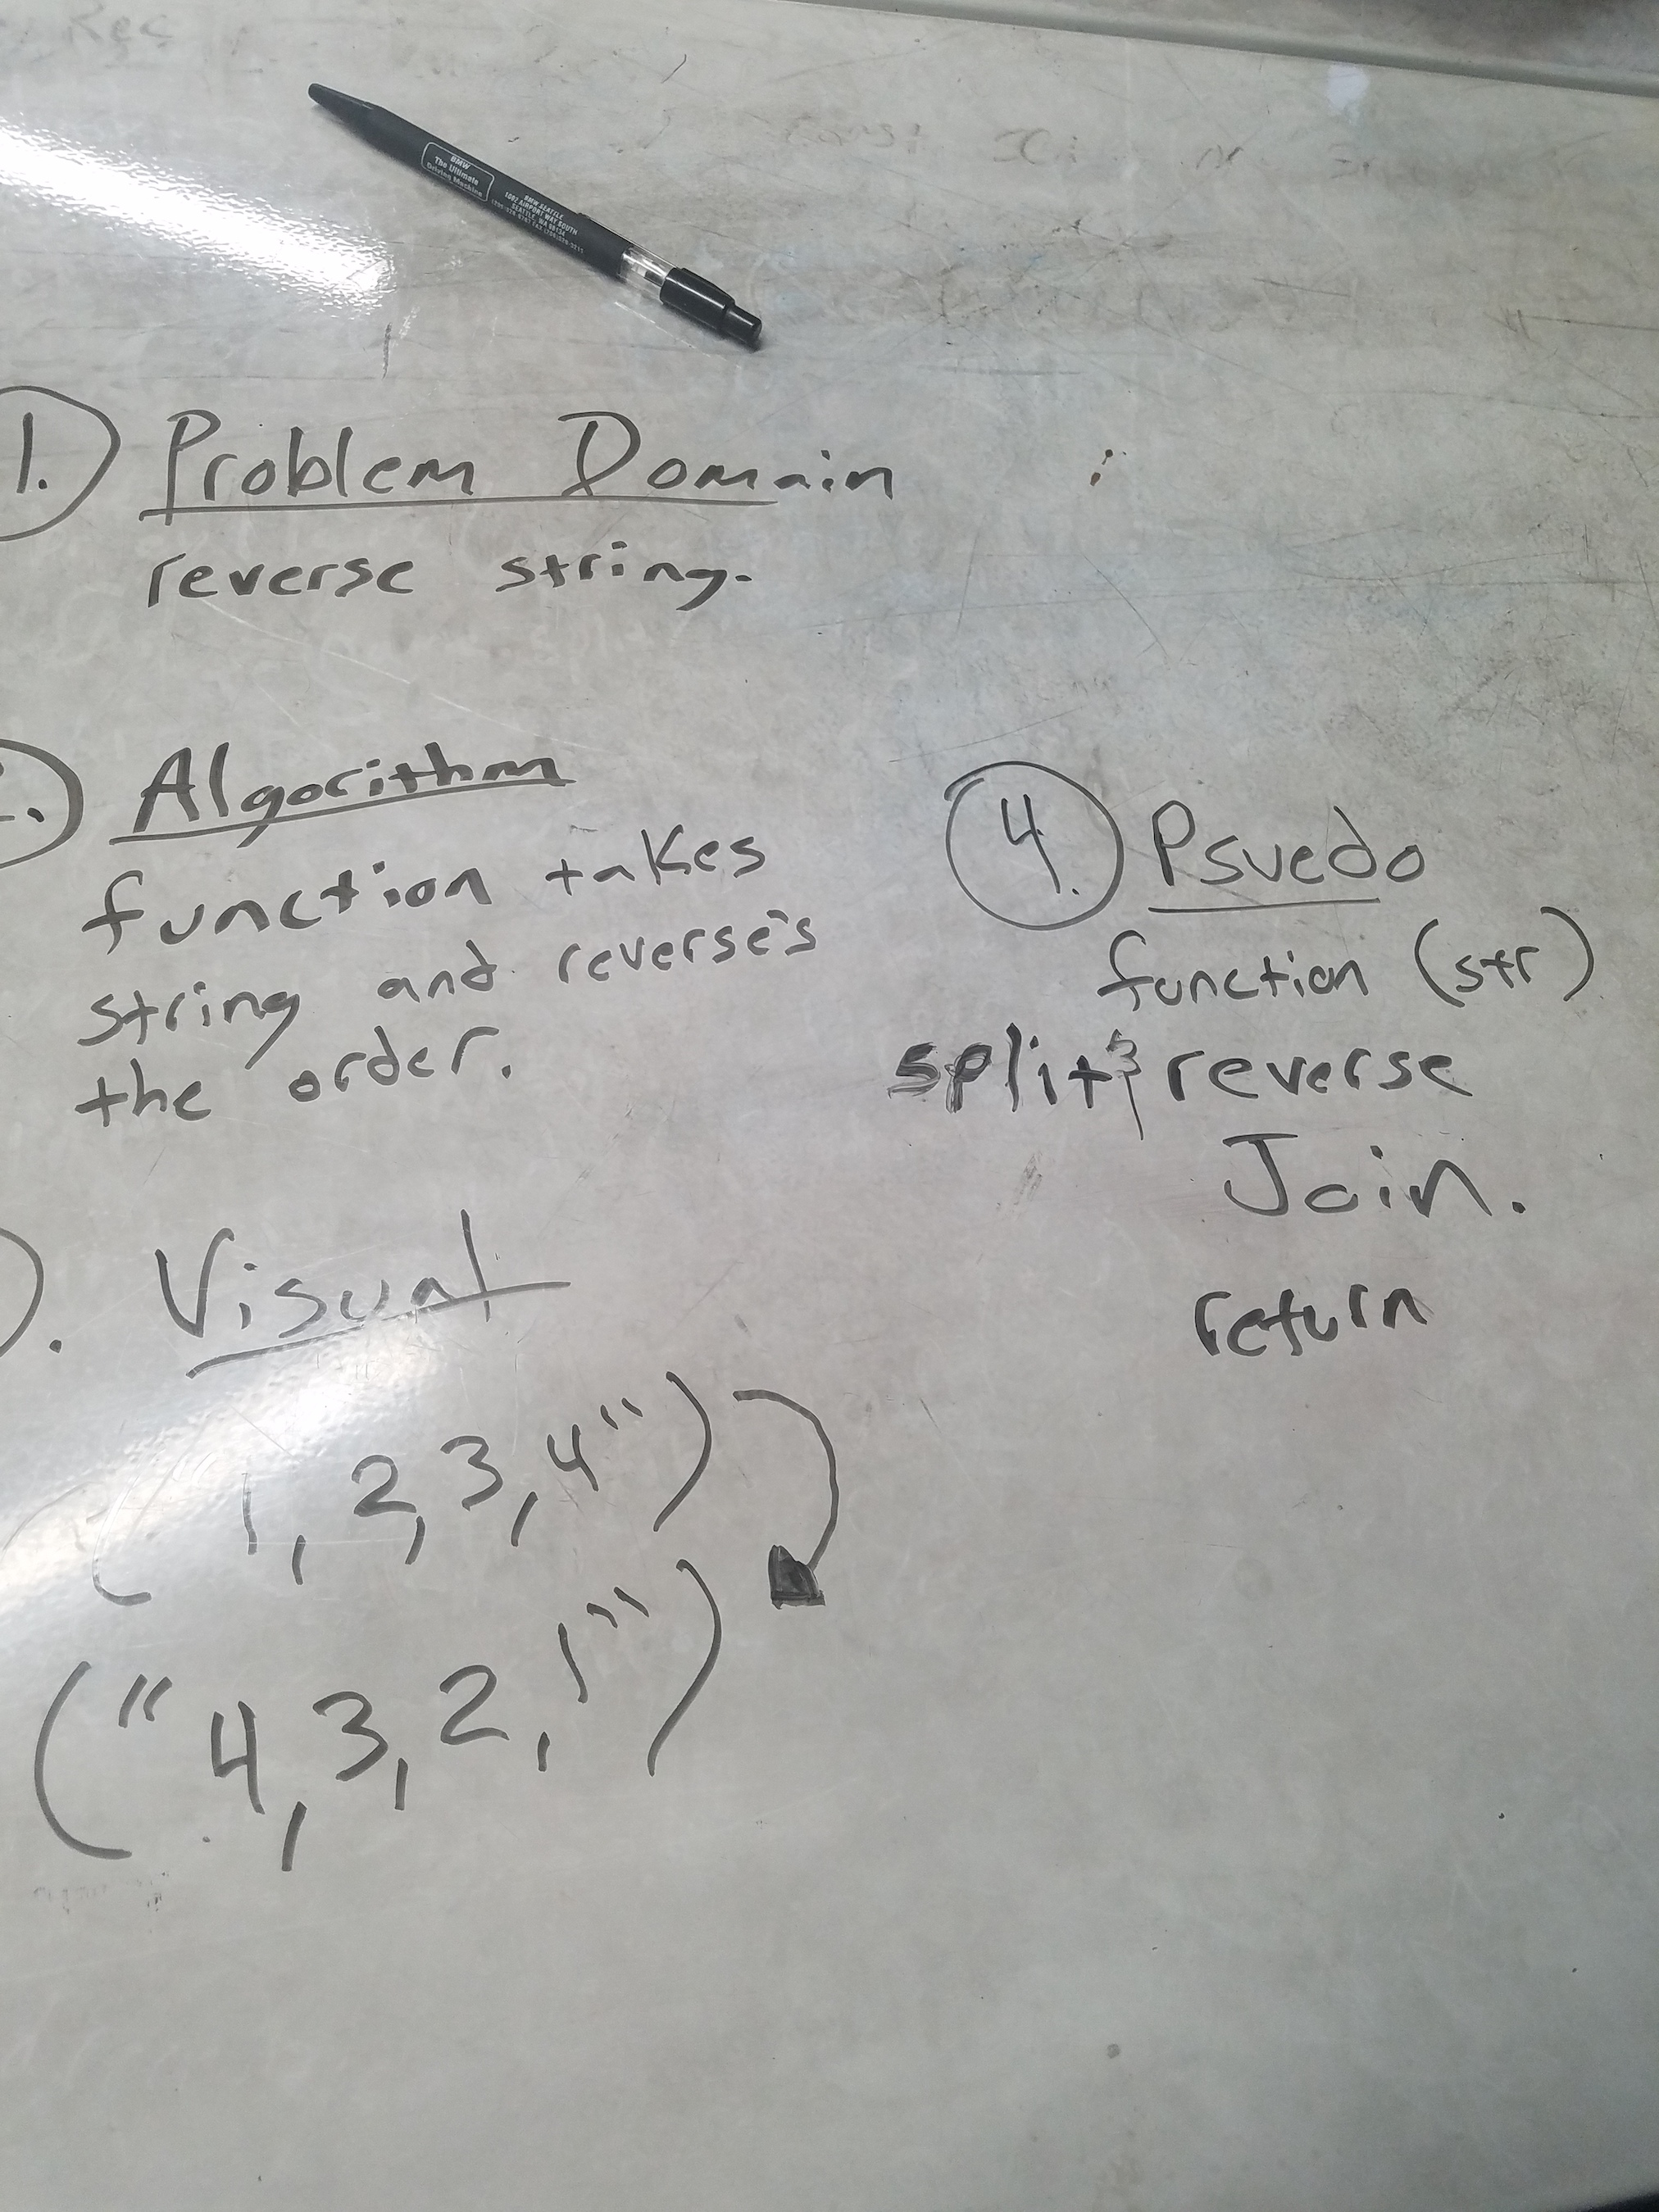 BMW
The Ultimate
Driving Machine
BMW SEATTLE
1002 AIRPORT WAY SOUTH
SEATTLE, WA 98134
1. Problem Domain
reverse string.
Algorithm
function takes
string and reverse's
the order.
Visual
(1, 2, 3, 4")
("4, 3, 2, 1")
4. Psuedo
function (str)
split & reverse
Join.
return